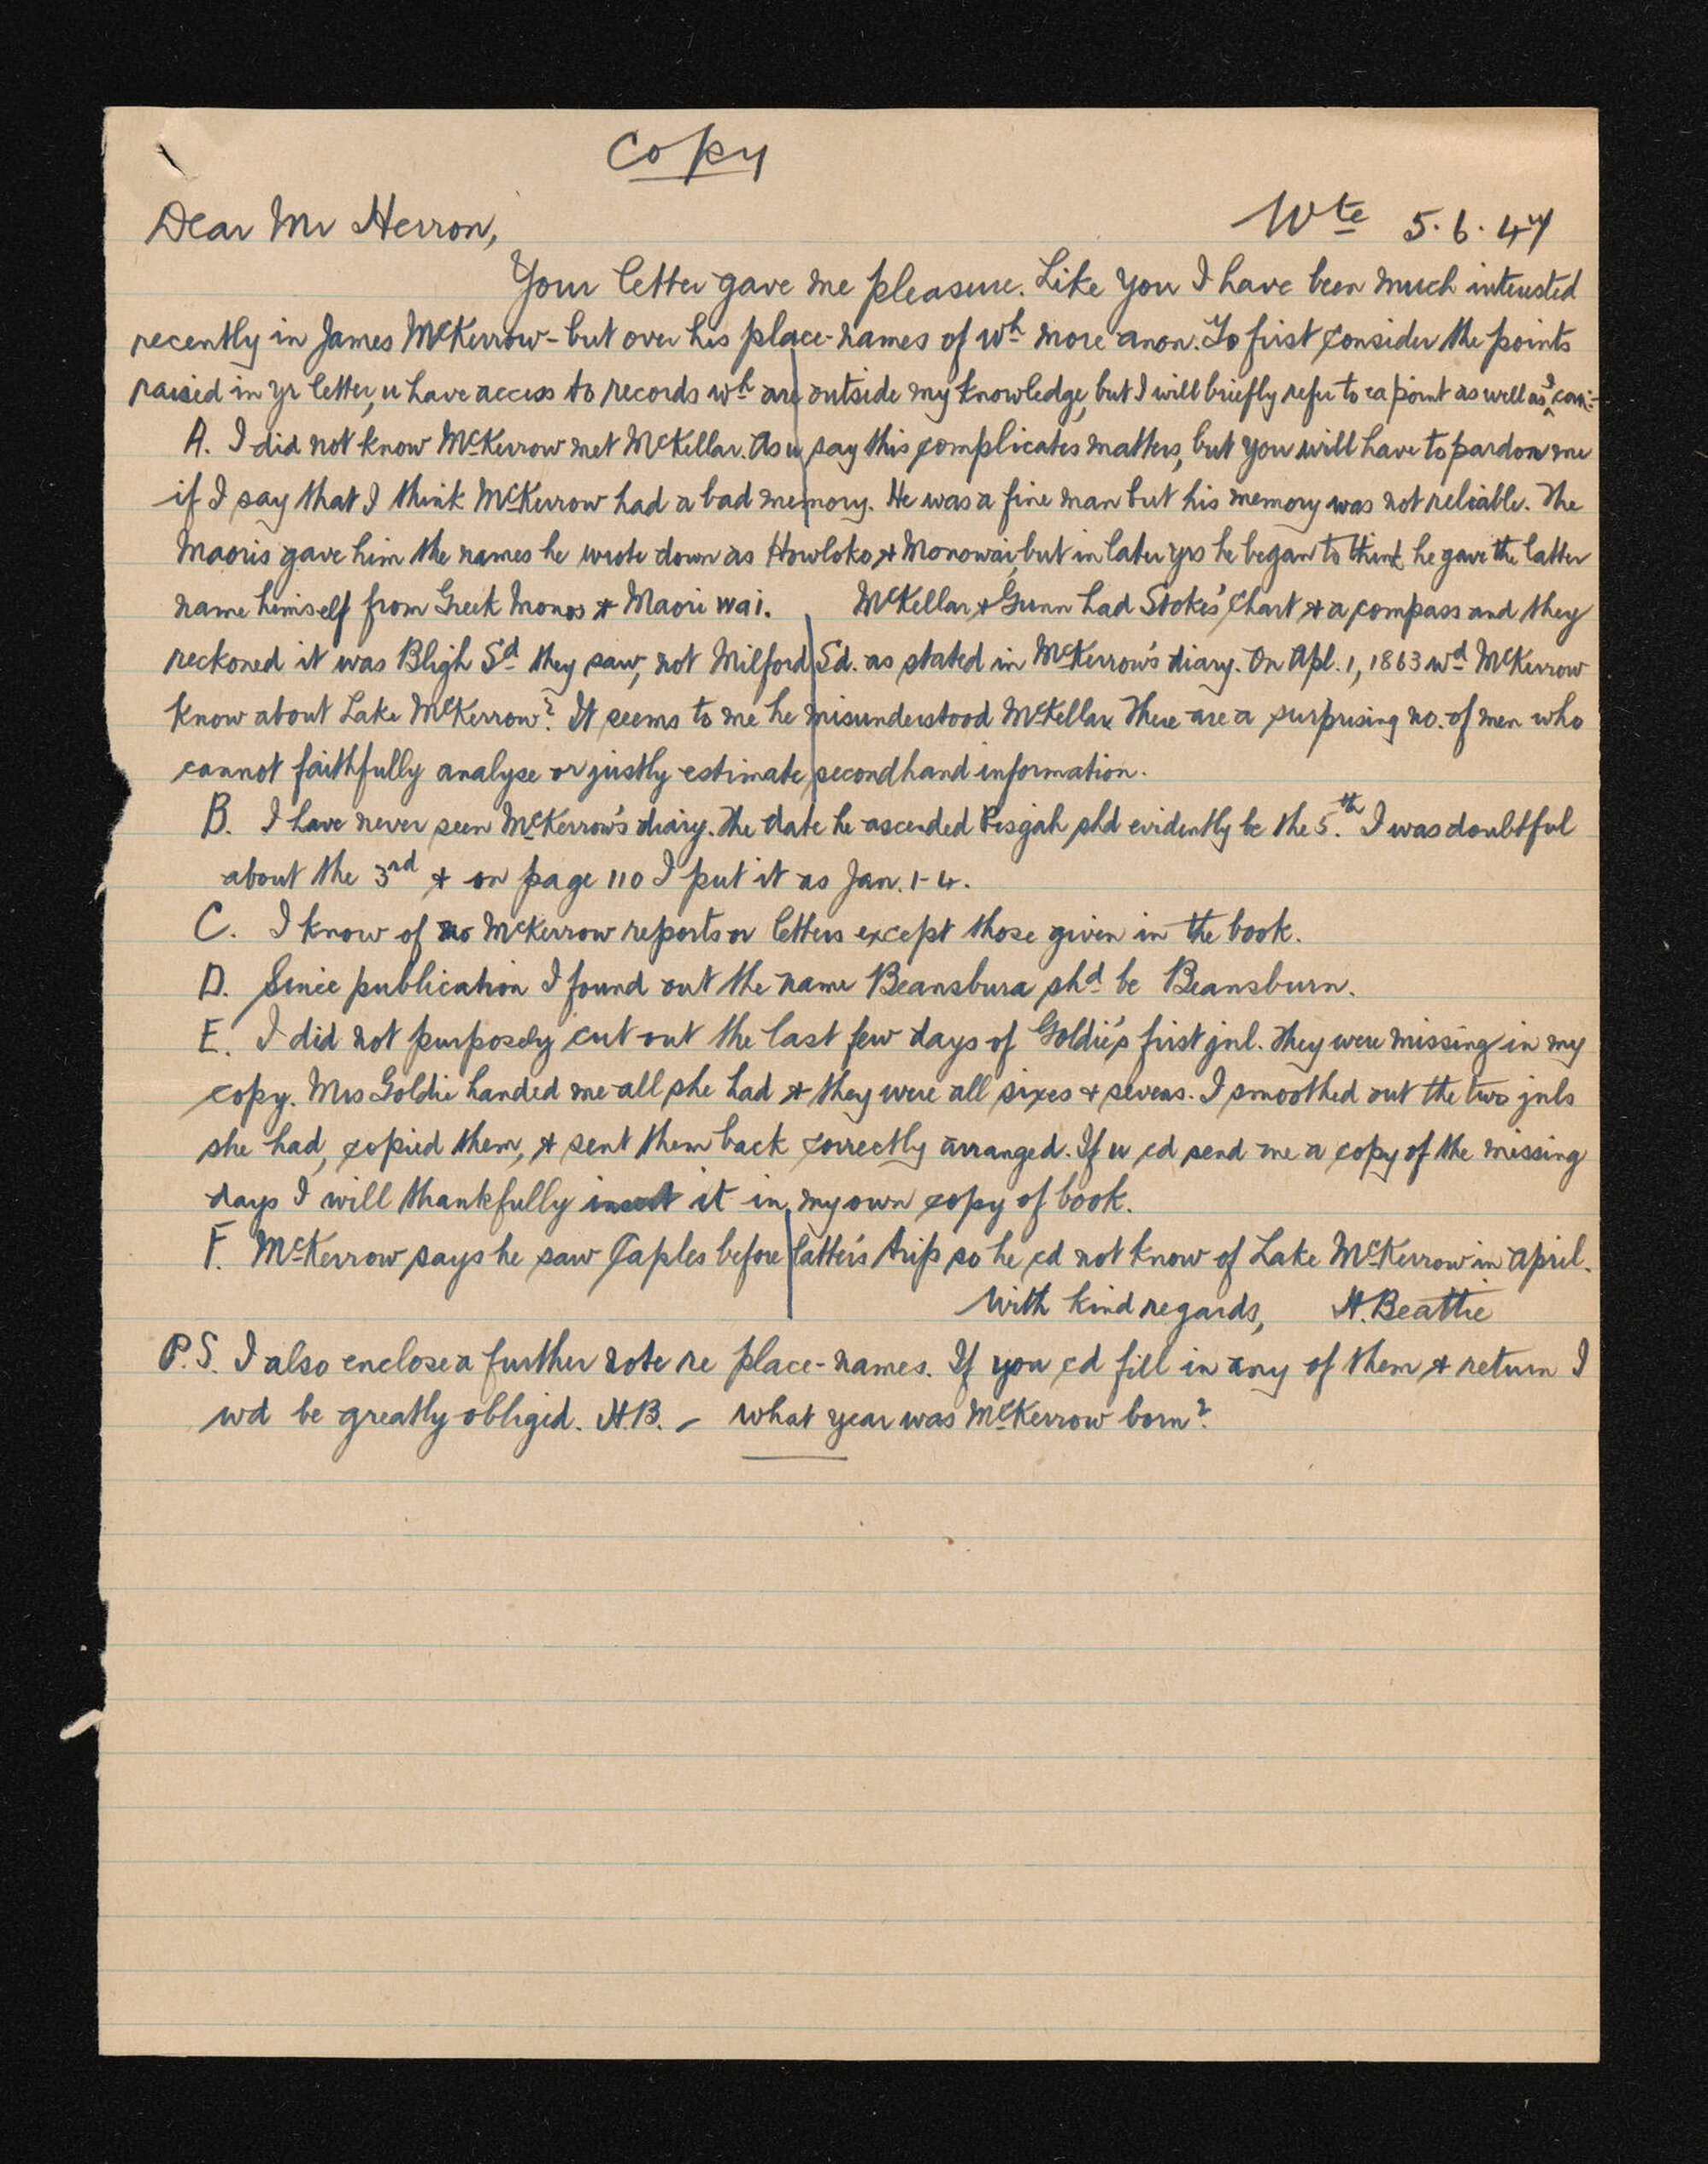 Copy
Dear Mr Herron,
Wte 5.6.47
Your letter gave me pleasure. Like you I have been much interested
recently in James McKerrow - but over his place-names of wh more anon. To first consider the points
raised in yr letter, u have access to records wh are outside my knowledge, but I will briefly refer to ea point as well as I can:-
A. I did not know McKerrow met McKellar. As u say this complicates matters, but you will have to pardon me
if I say that I think McKerrow had a bad memory. He was a fine man but his memory was not reliable. The
Maoris gave him the names he wrote down as Howloko & Monowai, but in later yrs he began to think he gave the latter
name himself from Greek Monos & Maori wai. McKellar & Gunn had Stokes' Chart & a compass and they
reckoned it was Bligh Sd they saw, not Milford Sd. as stated in McKerrow's diary. On Apl. 1, 1863 wd McKerrow
know about Lake McKerrow? It seems to me he misunderstood McKellar. There are a surprising no. of men who
cannot faithfully analyse or justly estimate secondhand information.
B. I have never seen McKerrow's diary. The date he ascended Pisgah shd evidently be the 5.th I was doubtful
about the 3rd & on page 110 I put it as Jan. 1-4.
C. I know of no McKerrow reports or letters except those given in the book.
D. Since publication I found out the name Beansbura shd be Beansburn.
E. I did not purposely cut out the last few days of Goldie's first jnl. They were missing in my
copy. Mrs Goldie handed me all she had & they were all sixes & sevens. I smoothed out the two jnls
she had, copied them, & sent them back correctly arranged. If u cd send me a copy of the missing
days I will thankfully insert it in my own copy of book.
F. McKerrow says he saw Caples before latter's trip so he cd not know of Lake McKerrow in April.
With kind regards, H. Beattie
P.S. I also enclose a further note re place-names. If you cd fill in any of them & return I
wd be greatly obliged. H.B. - What year was McKerrow born?